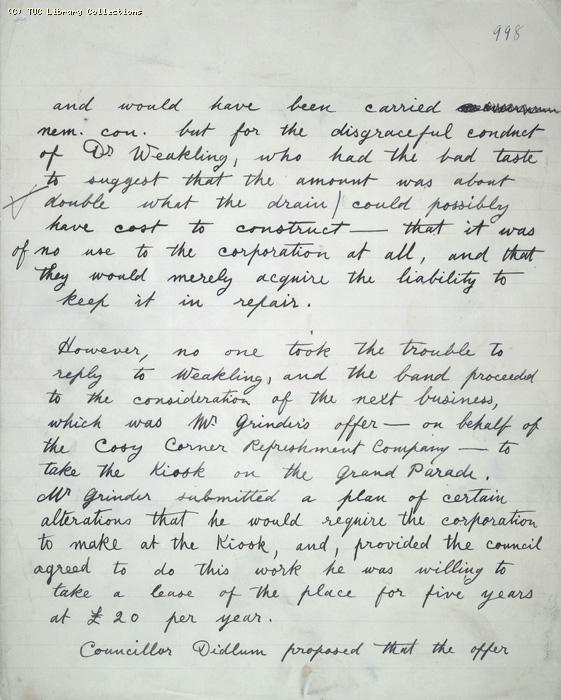 (C) TUC Library Collections
998
and would have been carried
nem. con. but for the disgraceful conduct
of Dr Weakling, who had the bad taste
to suggest that the amount was about
double what the drain / could possibly
have cost to construct — that it was
of no use to the corporation at all, and that
they would merely acquire the liability to
keep it in repair.
However, no one took the trouble to
reply to Weakling, and the band proceeded
to the consideration of the next business,
which was Mr Grinder's offer — on behalf of
the Cosy Corner Refreshment Company — to
take the Kiosk on the Grand Parade.
Mr Grinder submitted a plan of certain
alterations that he would require the corporation
to make at the Kiosk, and, provided the council
agreed to do this work he was willing to
take a lease of the place for five years
at £20 per year.
Councillor Didlum proposed that the offer